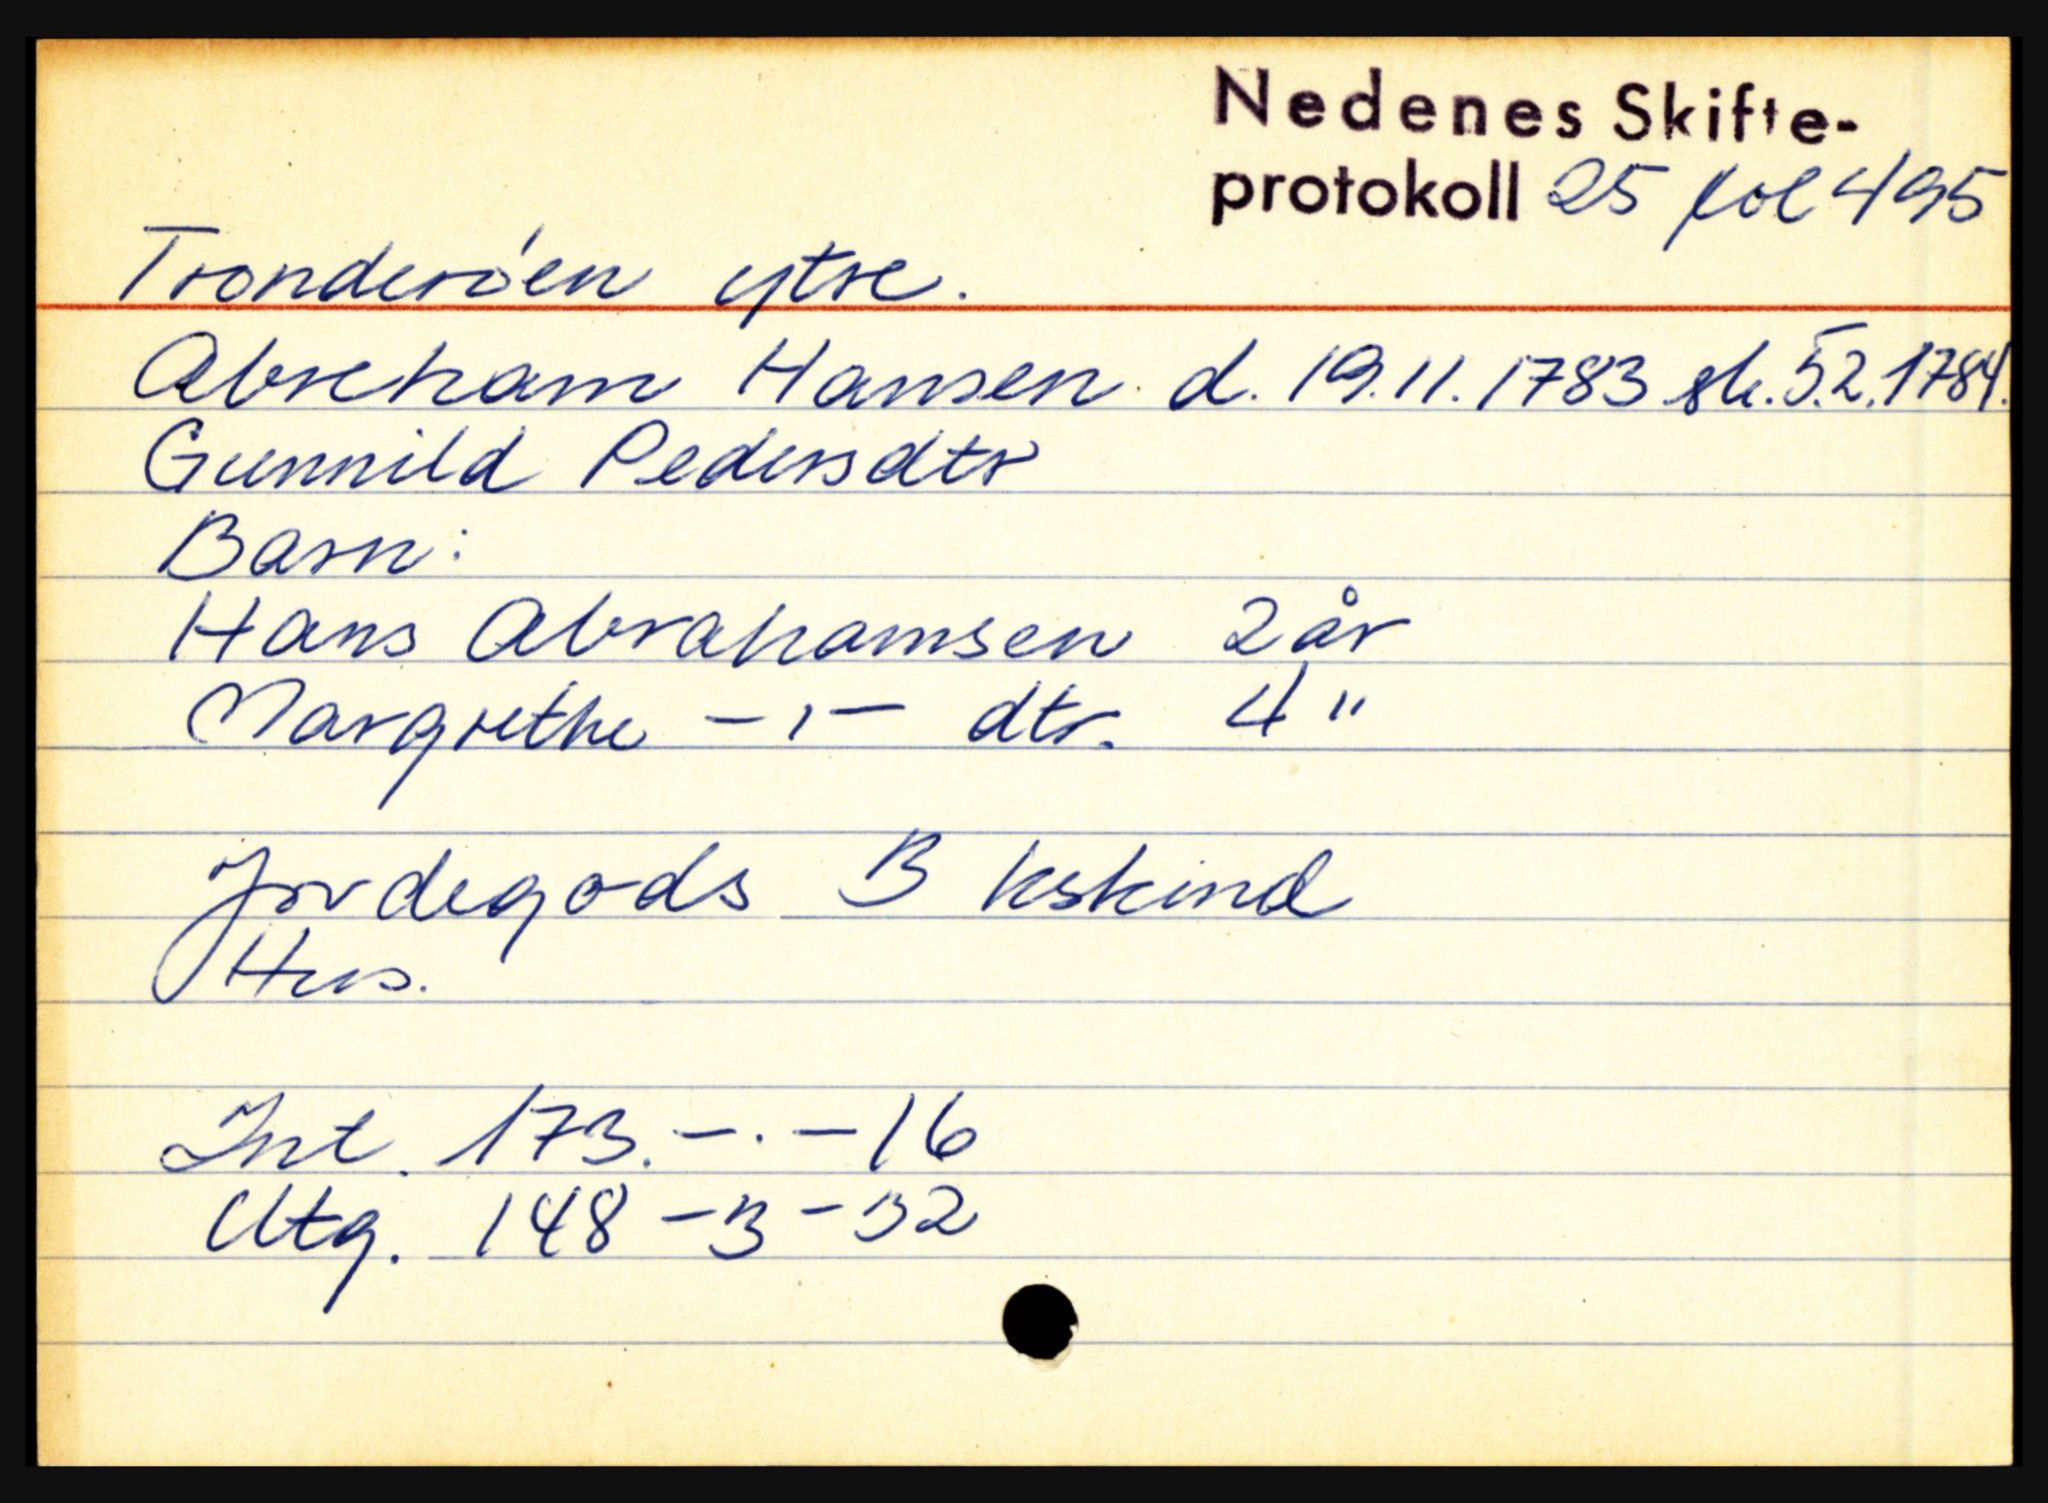 Nedenes Skifte-
protokoll 25 fol 495
Tronderöen ytre.
Abreham Hansen d. 19.11.1783 sk. 5.2.1784.
Gunnild Pedersdtr
Barn:
Hans Abrahamsen 2 år
Margrethe -,- dtr. 4 "
Jordegods 3 kskind
Hus.
Int. 173.-.-16
Utg. 148-3-32